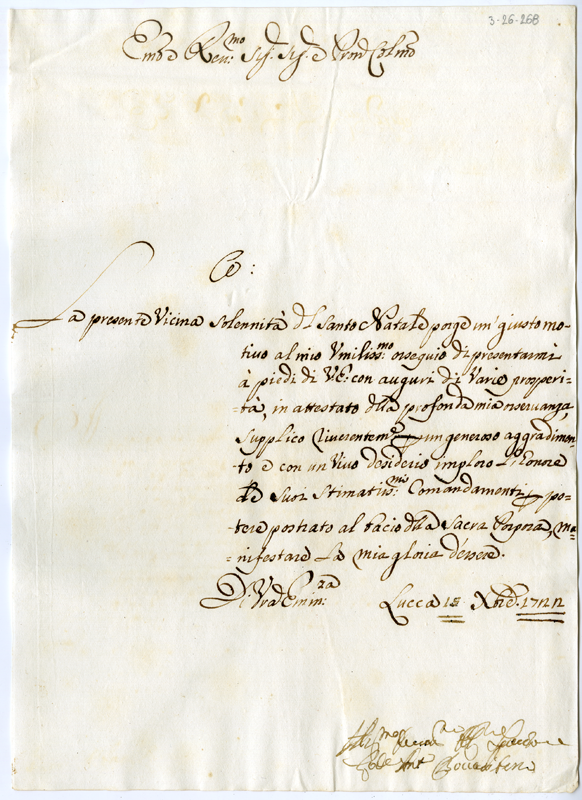 3-26-268
Em̃o e Reu:mo Sig.r Sig.r e Prõn Colmo
Ce:
La presente Vicina Solennità del Santo Natale porge un' giusto mo-
tiuo al mio Vmiliss:mo ossequio di presentarmi
à piedi di VE: con auguri di Varie prosperi-
-tà, in attestato della profonda mia osseruanza,
Supplico riuerentem:e un generoso aggradimen-
to e con un Viuo desiderio imploro L'Honore
de Suoi Stimatiss:mi Comandamenti, po-
-tere postrato al bacio della Sacra Porpora, ma-
=nifestare La mia gloria d'essere.
Di Vrã Emin:za Lucca 15 Xbre. 1722